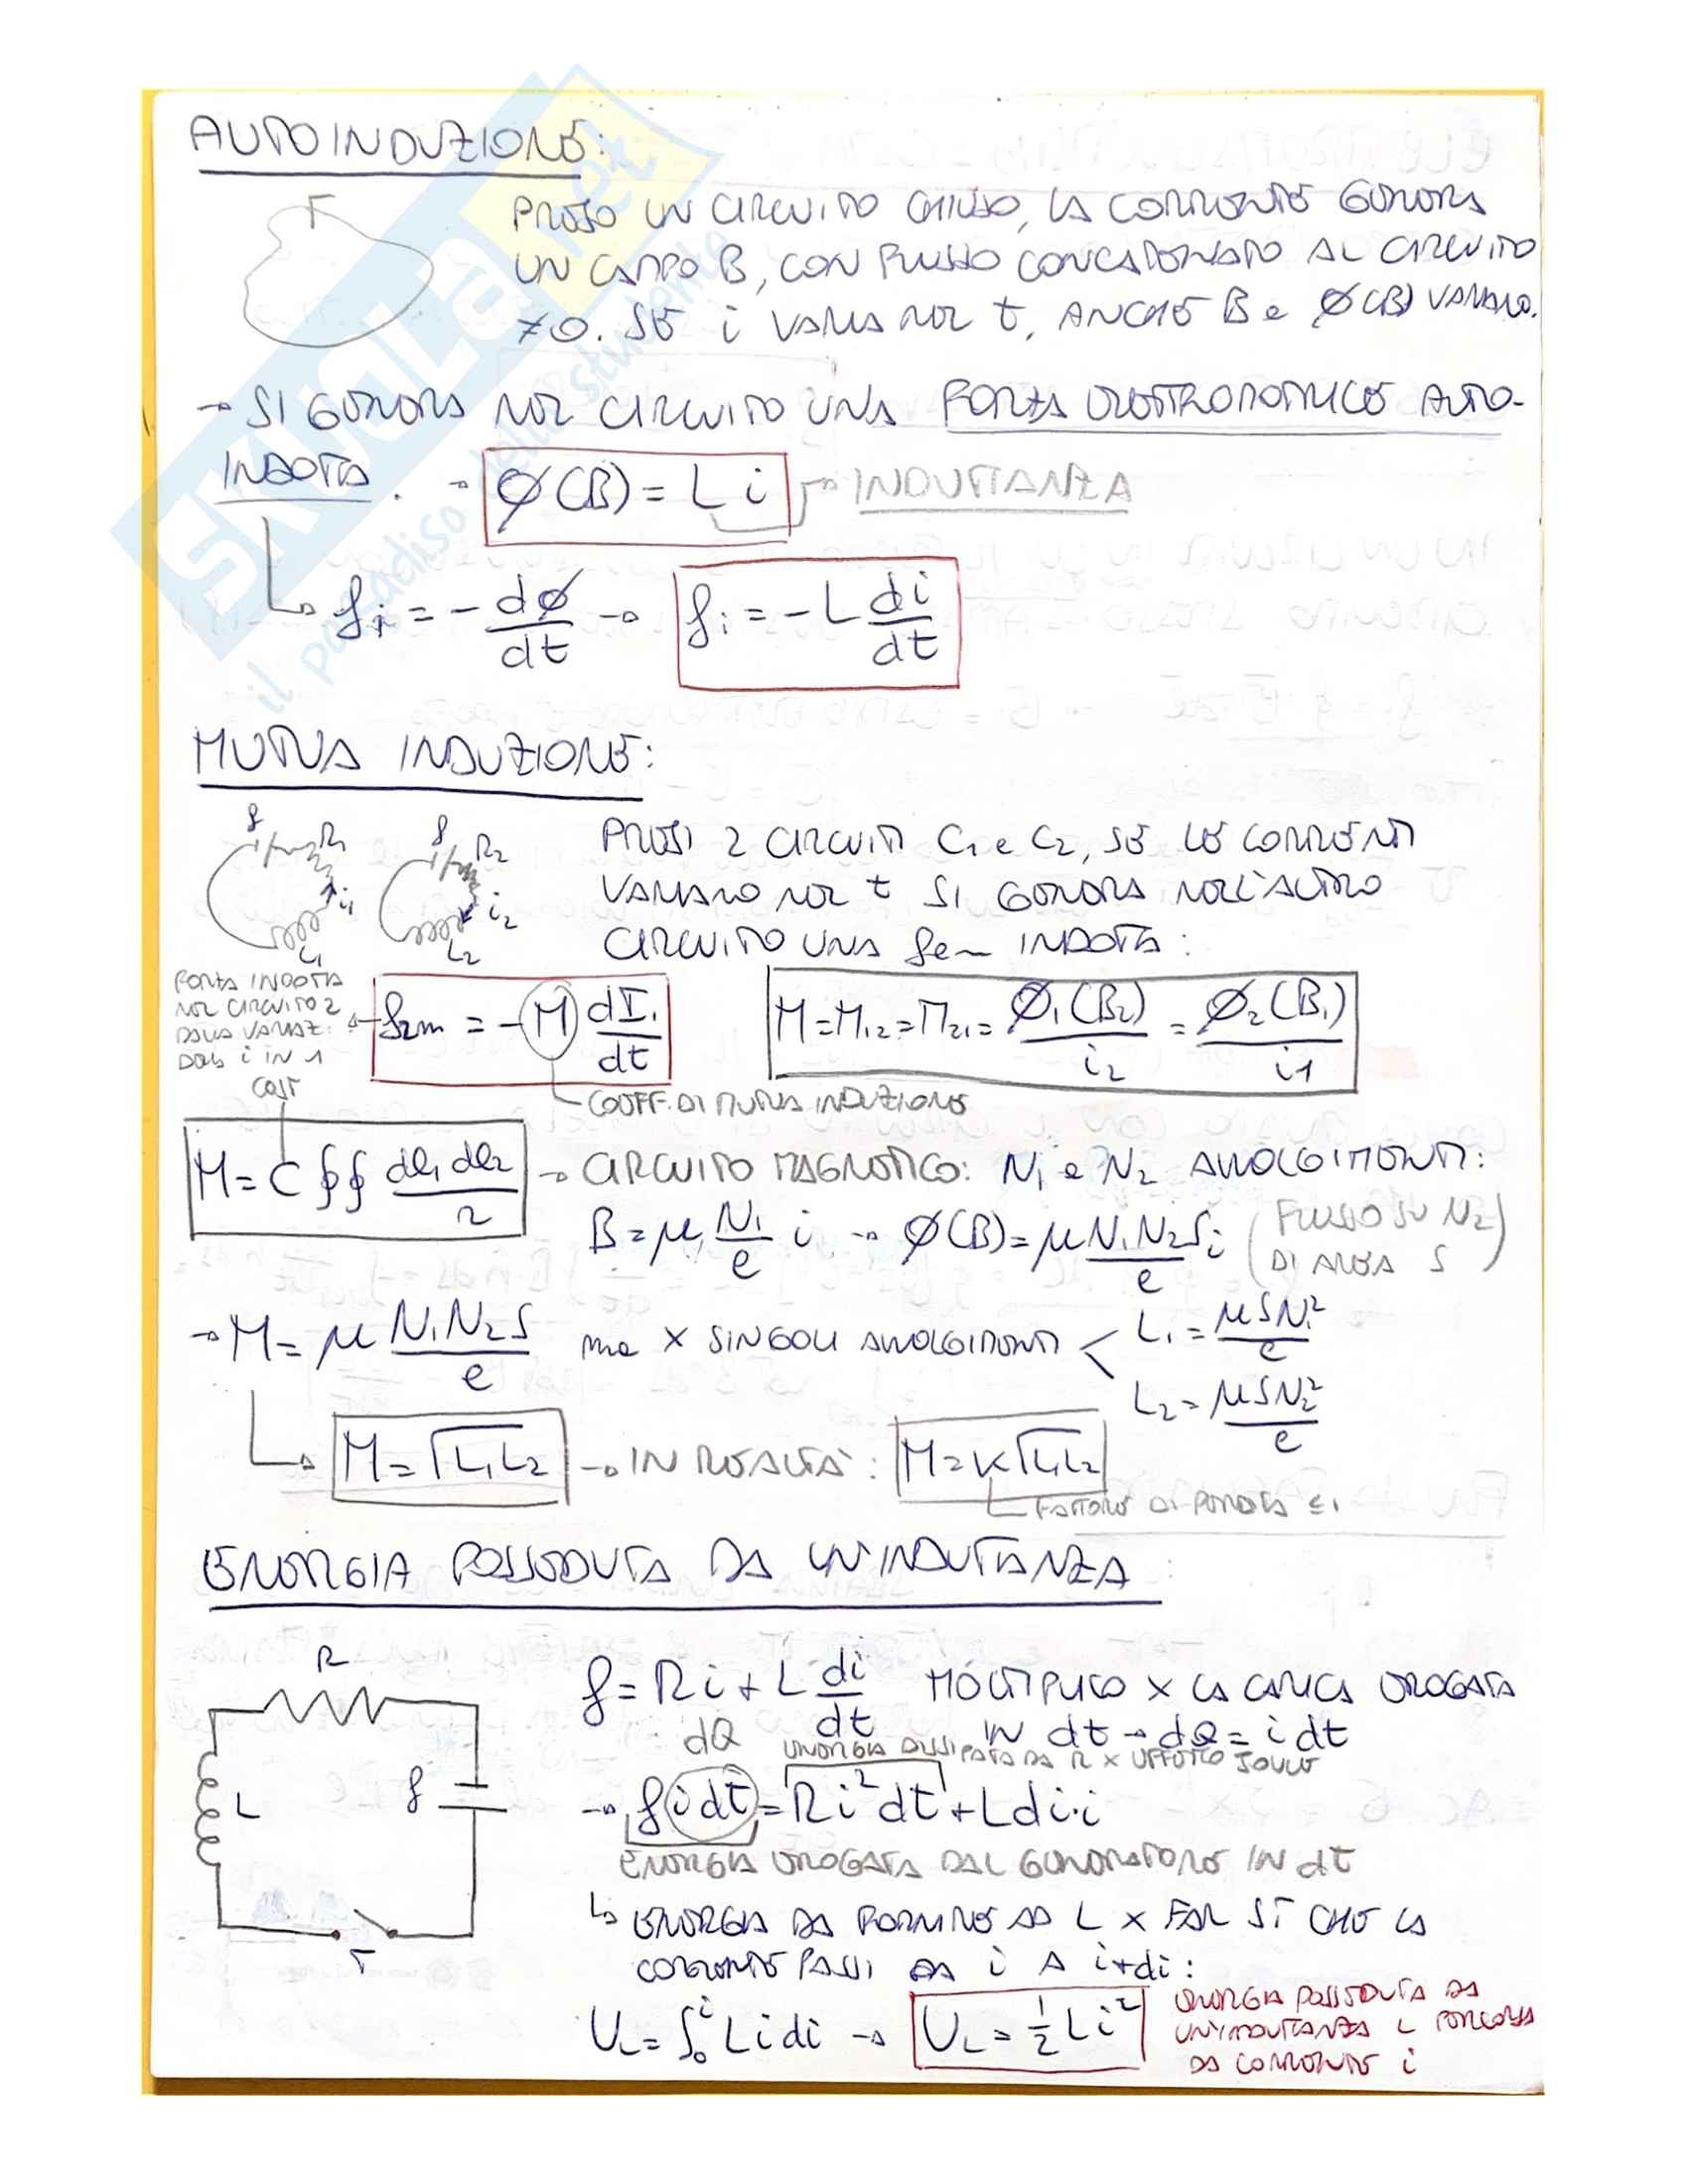 AUTOINDUZIONE:
Γ
PRESO UN CIRCUITO CHIUSO, LA CORRENTE GENERA
UN CAMPO B, CON FLUSSO CONCATENATO AL CIRCUITO
≠0. SE i VARIA NEL t, ANCHE B e Ø(B) VARIANO.
→ SI GENERA NEL CIRCUITO UNA FORZA ELETTROMOTRICE AUTO-
INDOTTA. → Ø(B) = L i → INDUTTANZA
↳ fi = - dØ/dt → fi = -L di/dt
MUTUA INDUZIONE:
f R1 i1 L1 f R2 i2 L2
PRESI 2 CIRCUITI C1 e C2, SE LE CORRENTI
VARIANO NEL t SI GENERA NELL'ALTRO
CIRCUITO UNA fem INDOTTA:
FORZA INDOTTA
NEL CIRCUITO 2
DALLA VARIAZ.
DELLA i IN 1
f2m = -M dI1/dt
M = M12 = M21 = Ø1(B2)/i2 = Ø2(B1)/i1
COEFF. DI MUTUA INDUZIONE
COST
M = C ∮∮ dl1 dl2/r → CIRCUITO MAGNETICO: N1 e N2 AVVOLGIMENTI:
B = μ N1/l i → Ø(B) = μ N1N2S/l i (FLUSSO SU N2 DI AREA S)
→ M = μ N1N2S/l ma x SINGOLI AVVOLGIMENTI < L1 = μSN1²/l
L2 = μSN2²/l
↳ M = √L1L2 → IN REALTÀ: M = k√L1L2
FATTORE DI PERDITA ≤1
ENERGIA POSSEDUTA DA UN'INDUTTANZA:
R
L
f
T
f = Ri + L di/dt MOLTIPLICO x LA CARICA EROGATA
IN dt → dQ = i dt
dQ ENERGIA DISSIPATA DA R x EFFETTO JOULE
→ f i dt = Ri²dt + L di·i
ENERGIA EROGATA DAL GENERATORE IN dt
↳ ENERGIA DA FORNIRE AD L x FAR SÌ CHE LA
CORRENTE PASSI DA i A i+di:
UL = ∫₀ⁱ L i di → UL = ½ L i²
ENERGIA POSSEDUTA DA
UN'INDUTTANZA L PERCORSA
DA CORRENTE i
SKUOLA.net
il paradiso dello studente